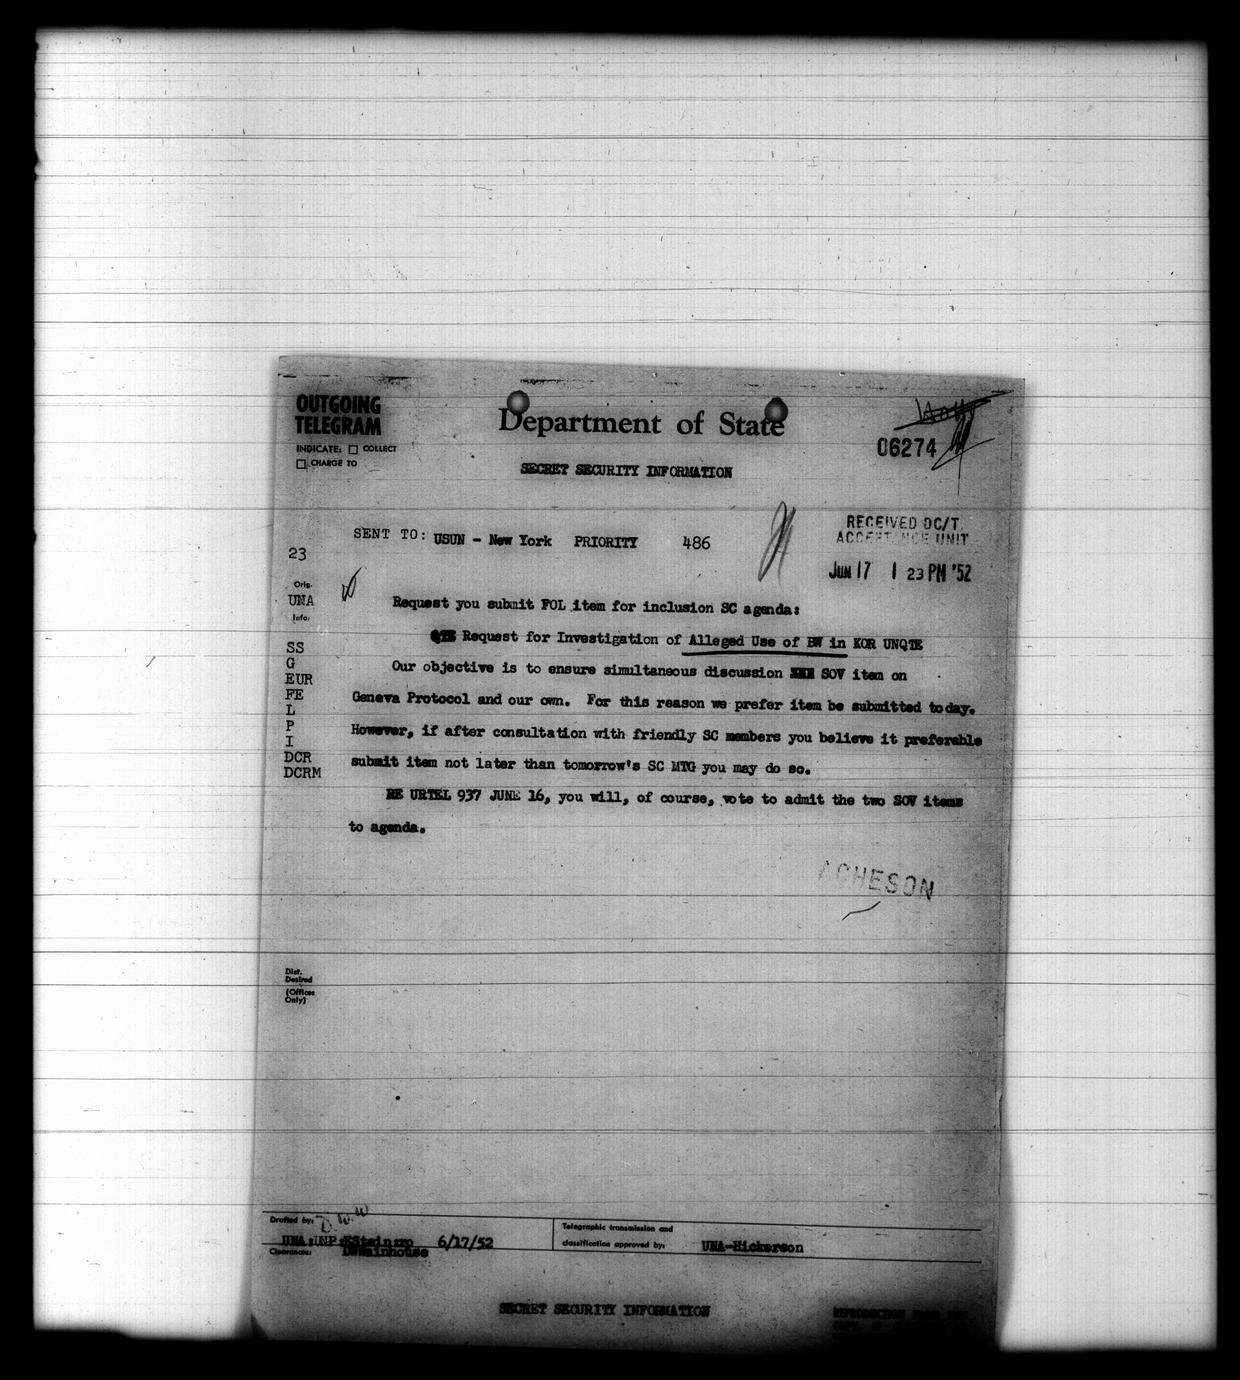 OUTGOING
TELEGRAM
INDICATE: ☐ COLLECT
☐ CHARGE TO
Department of State
SECRET SECURITY INFORMATION
06274
SENT TO: USUN - New York PRIORITY 486
RECEIVED DC/T
ACCEPTANCE UNIT
JUN 17 1 23 PM '52
23
Orig.
UNA
Info:
SS
G
EUR
FE
L
P
I
DCR
DCRM
Request you submit FOL item for inclusion SC agenda:
QTE Request for Investigation of Alleged Use of BW in KOR UNQTE
Our objective is to ensure simultaneous discussion XXX SOV item on
Geneva Protocol and our own. For this reason we prefer item be submitted today.
However, if after consultation with friendly SC members you believe it preferable
submit item not later than tomorrow's SC MTG you may do so.
RE URTEL 937 JUNE 16, you will, of course, vote to admit the two SOV items
to agenda.
ACHESON
Dist.
Desired
(Offices
Only)
Drafted by:
UNA:UNP: 6/17/52
DWWainhouse
Clearances:
Telegraphic transmission and
classification approved by: UNA-Hickerson
SECRET SECURITY INFORMATION
REPRODUCTION FROM THIS
COPY